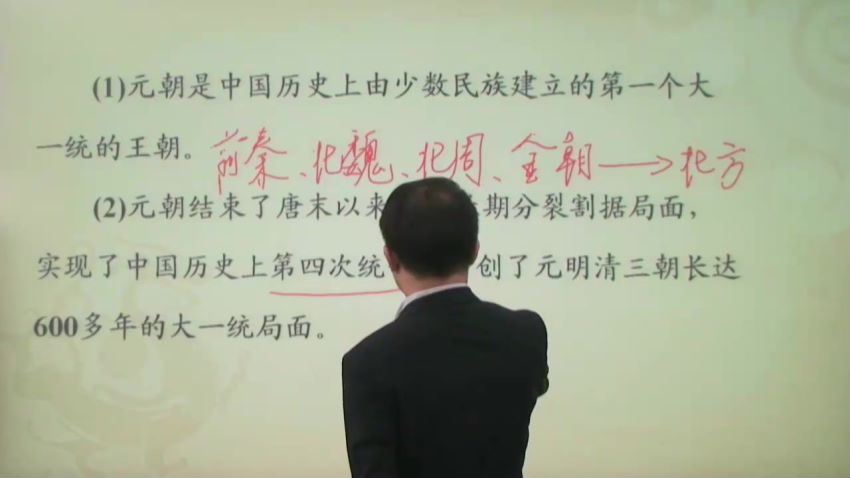 (1)元朝是中国历史上由少数民族建立的第一个大
一统的王朝。前秦、北魏、北周、金朝→北方
(2)元朝结束了唐末以来 期分裂割据局面，
实现了中国历史上第四次统 创了元明清三朝长达
600多年的大一统局面。